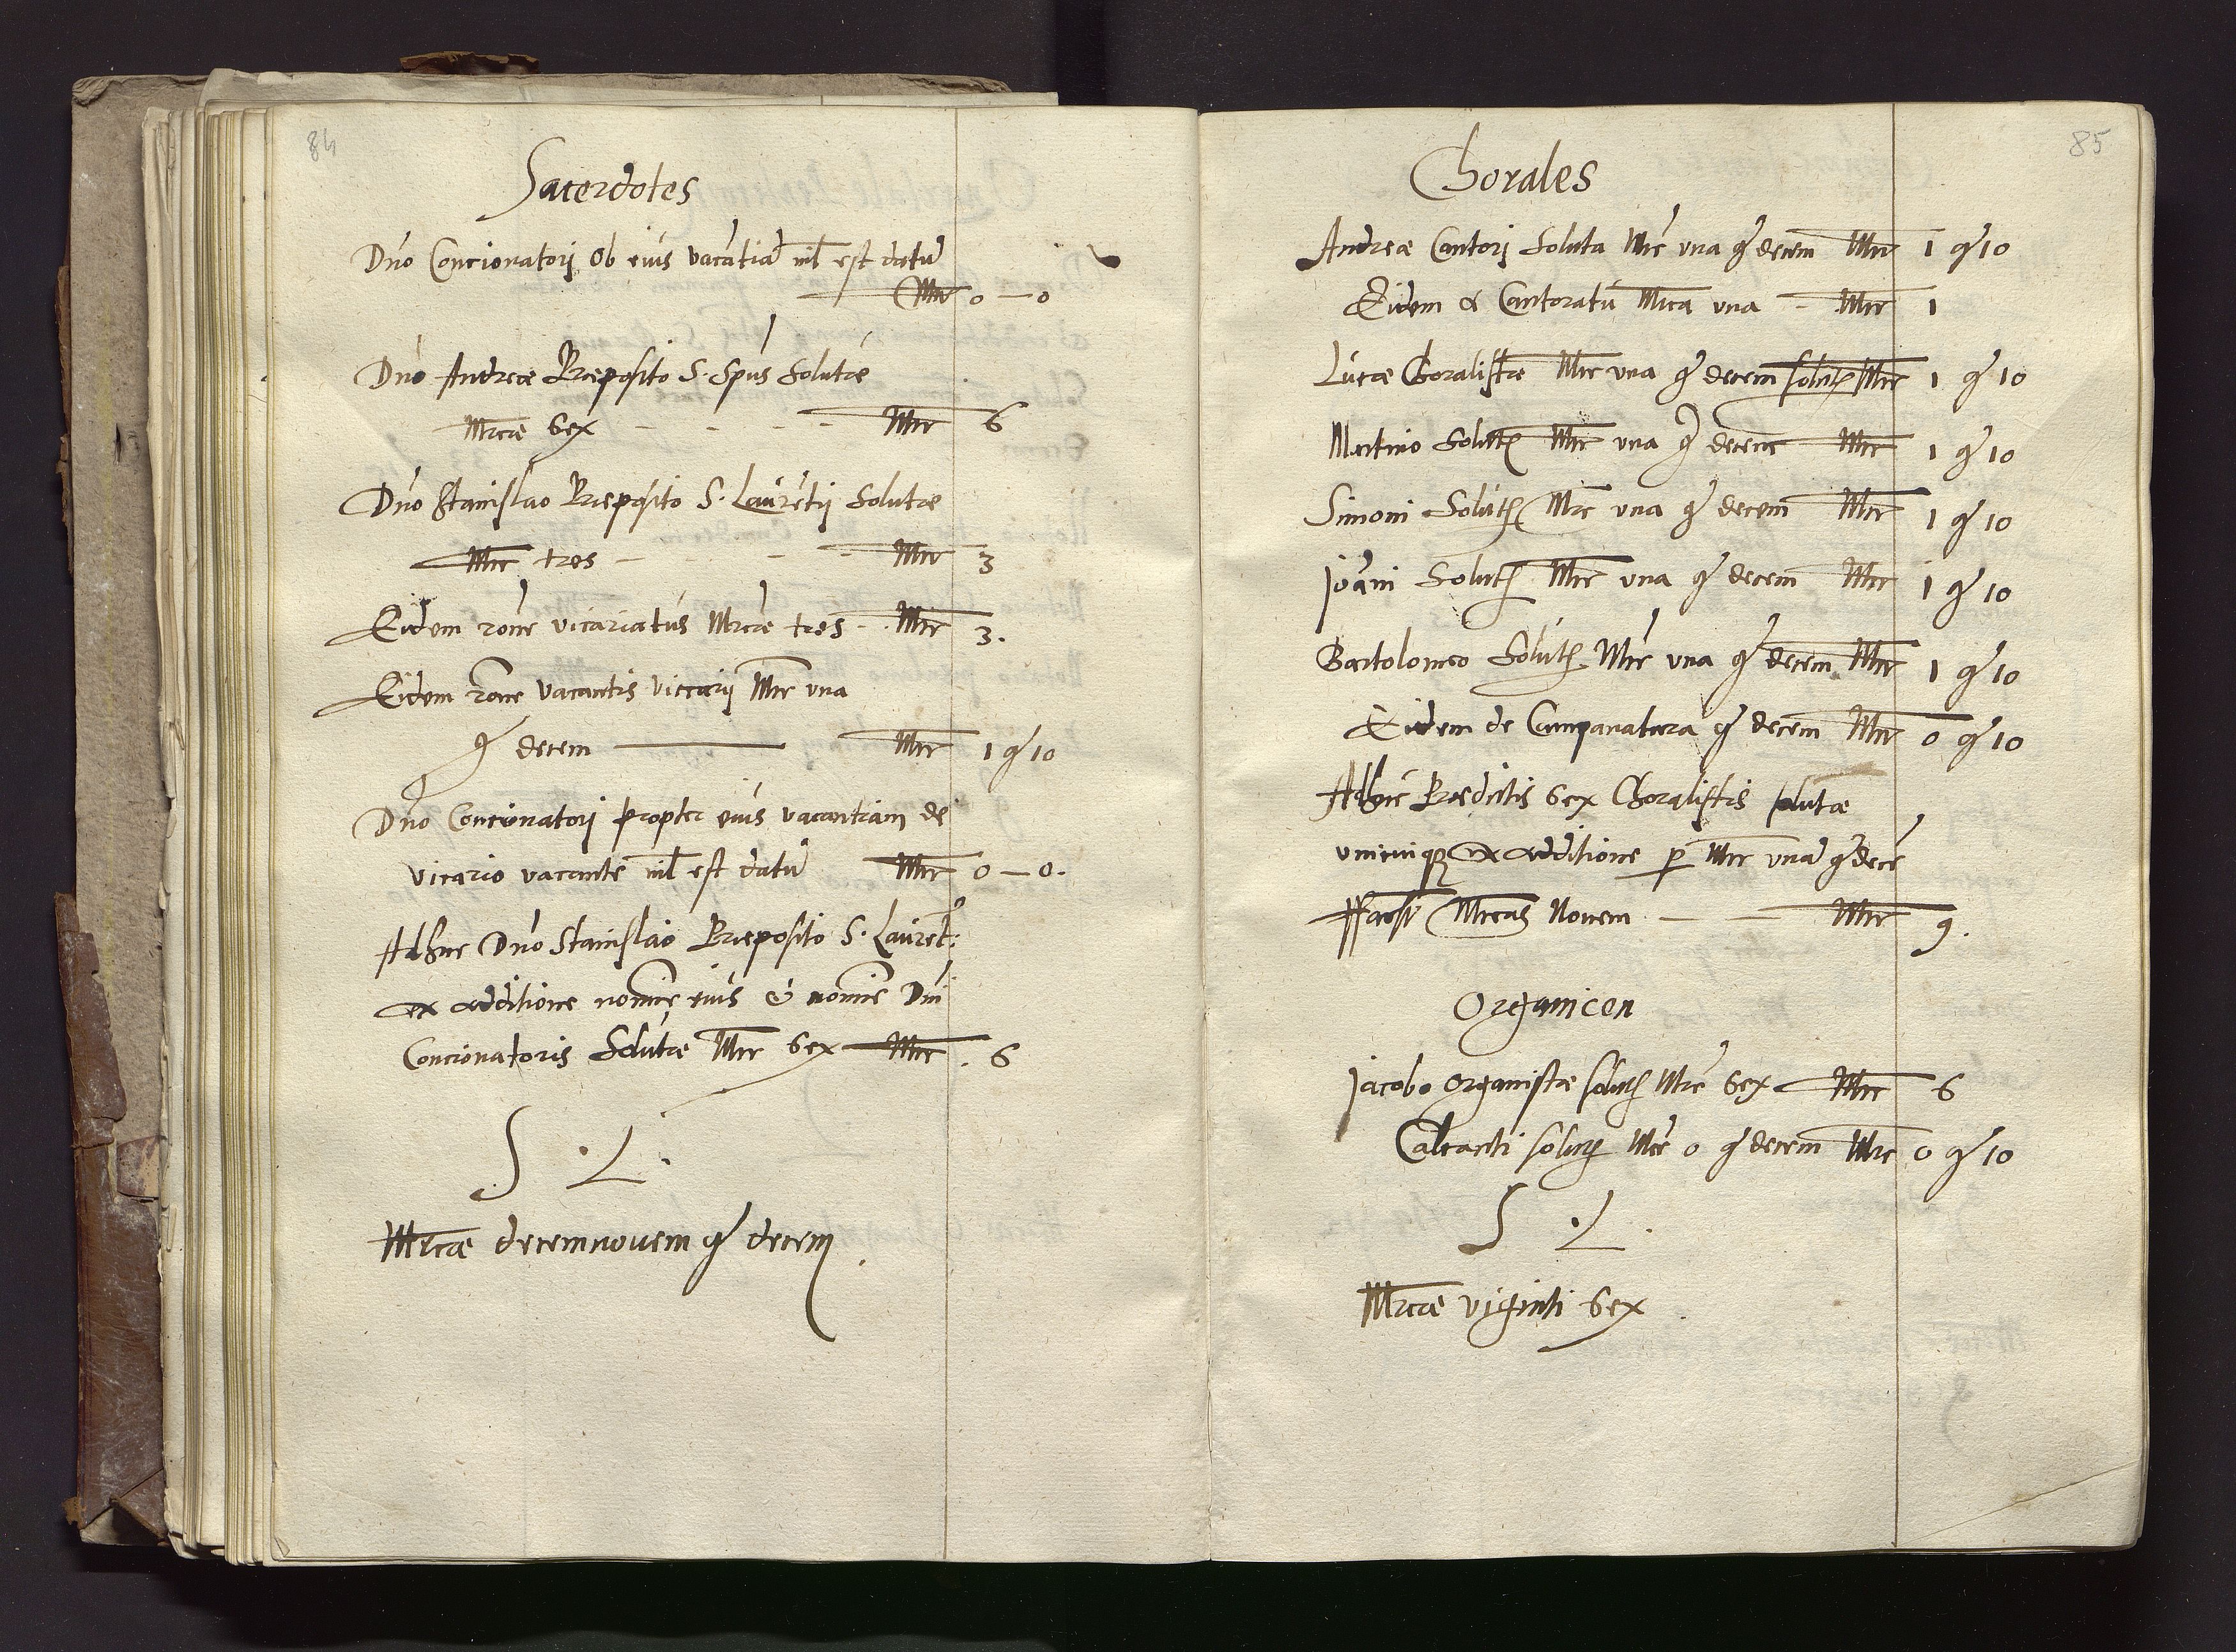 84
Sacerdotes
Dno Concionatorj Ob eius vacātiā nil est datū
Mrc 0 — 0
Dno Andreæ Præposito S. Spūs Solutæ
Mrcæ Sex - - - - Mrc 6
Dno Stanislao Præposito S. Laurētij Solutæ
Mrc tres - - - Mrc 3
Eidem rōne vicariatus Mrcæ tres - Mrc 3.
Eidem rōne vacantis viccarij Mrc vna
gr decem — Mrc 1 gr 10
Dno Concionatorj propter eius vacantiam de
vicario vacante nil est datū Mrc 0 — 0.
Adhuc Dno Stanislao Præposito S. Laurēt:
ex additione nomine eius & nomine Dni
Concionatoris Solutæ Mrc Sex Mrc . 6
S . L .
Mrcæ decemnouem gr decem .
85
Chorales
Andreæ Cantorj Soluta Mrc vna gr decem Mrc 1 gr 10
Eidem Cantoratū Mrca vna - Mrc 1
Lucæ Choralistæ Mrc vna gr decem Mrc 1 gr 10
Martino Mrc vna gr decem Mrc 1 gr 10
Simoni Mrc vna gr decem Mrc 1 gr 10
Joāni Mrc vna gr decem Mrc 1 gr 10
Bartolomeo Mrc vna gr decem Mrc 1 gr 10
Eidem de Campanatura gr decem Mrc 0 gr 10
Adhuc Prædictis Sex Choralistis solutæ
vnicuiqz ex additione p Mrc vnā gr decē
Mrcas Nouem — — Mrc 9.
Organicen
Jacobo Organistæ Mrc Sex Mrc 6
Calcanti Mrc 0 gr decem Mrc 0 gr 10
S . L .
Mrcæ viginti Sex